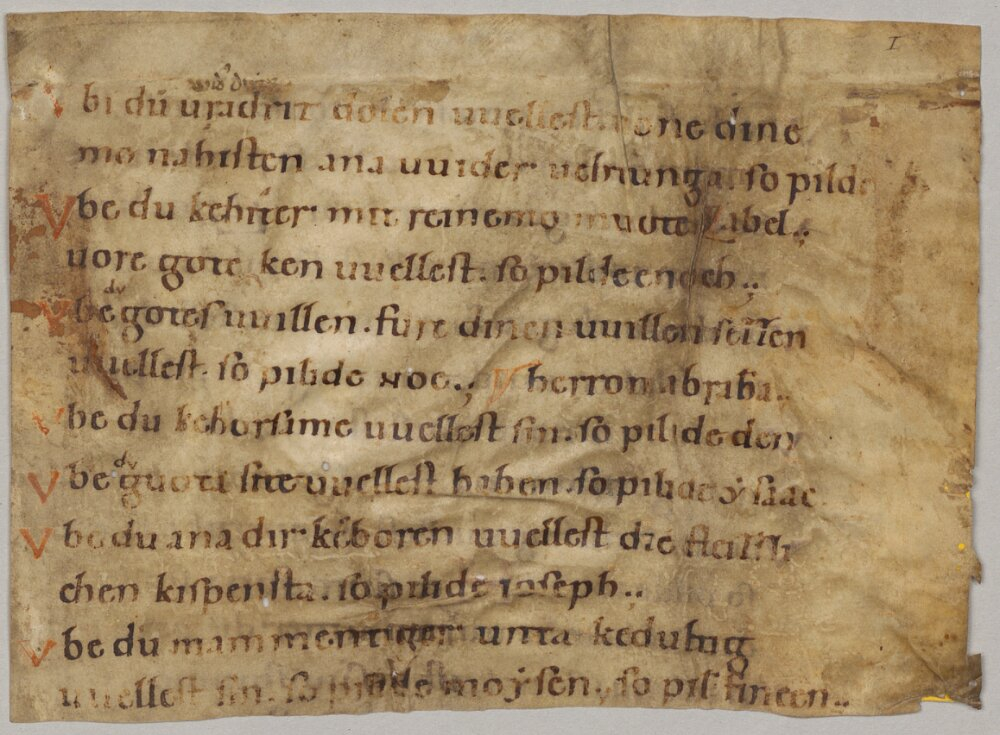 I
Vbi du uradrit dolen uuellest. none dine
mo nahisten ana uuider uehtunga so pilde
Vbe du keh mit reinemo muote Zabel.,
uore gote ken uuellest. so pilde enoch.,
Vbe du gotes uuillen. fure dinen uuillen sezzen
uuellest. so pilide noe., V herron abraha..
Vbe du kehorsime uuellest sin. so pilide den
Vbe du guote site uuellest haben. so pilide ẏsaac
Vbe du ana dir keboren uuellest die fleissli
chen kispensta. so pilide ioseph..
Vbe du mammentiger unta kedultig
uuellest sin. so pilide moẏsen.,